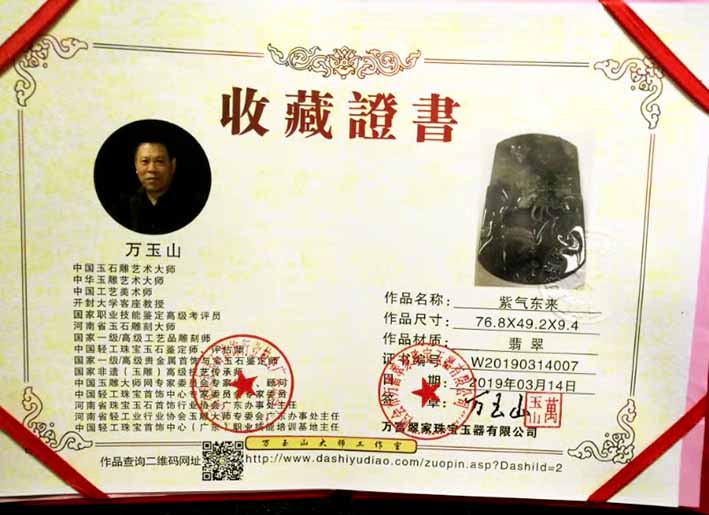 收藏證書
万玉山
中国玉石雕艺术大师
中华玉雕艺术大师
中国工艺美术师
开封大学客座教授
国家职业技能鉴定高级考评员
河南省玉石雕刻大师
国家一级/高级工艺品雕刻师
中国轻工珠宝玉石鉴定师、评估师
国家一级/高级贵金属首饰与宝玉石鉴定师
国家非遗（玉雕）高级技艺传承师
中国玉雕大师网专家委员会专家 顾问
中国轻工珠宝首饰中心专家委员会专家委员
河南省珠宝玉石首饰行业协会广东办事处主任
河南省轻工业行业协会玉雕大师专委会广东办事处主任
中国轻工珠宝首饰中心（广东）职业技能培训基地主任
作品名称：紫气东来
作品尺寸：76.8X49.2X9.4
作品 ：翡翠
证书编号：W20190314007
日 期：2019年03月14日
签 章：万玉山
萬玉山
万富翠家珠宝玉器有限公司
万玉山大师工作室
作品查询二维码网址：
http://www.dashiyudiao.com/zuopin.asp?DashiId=2